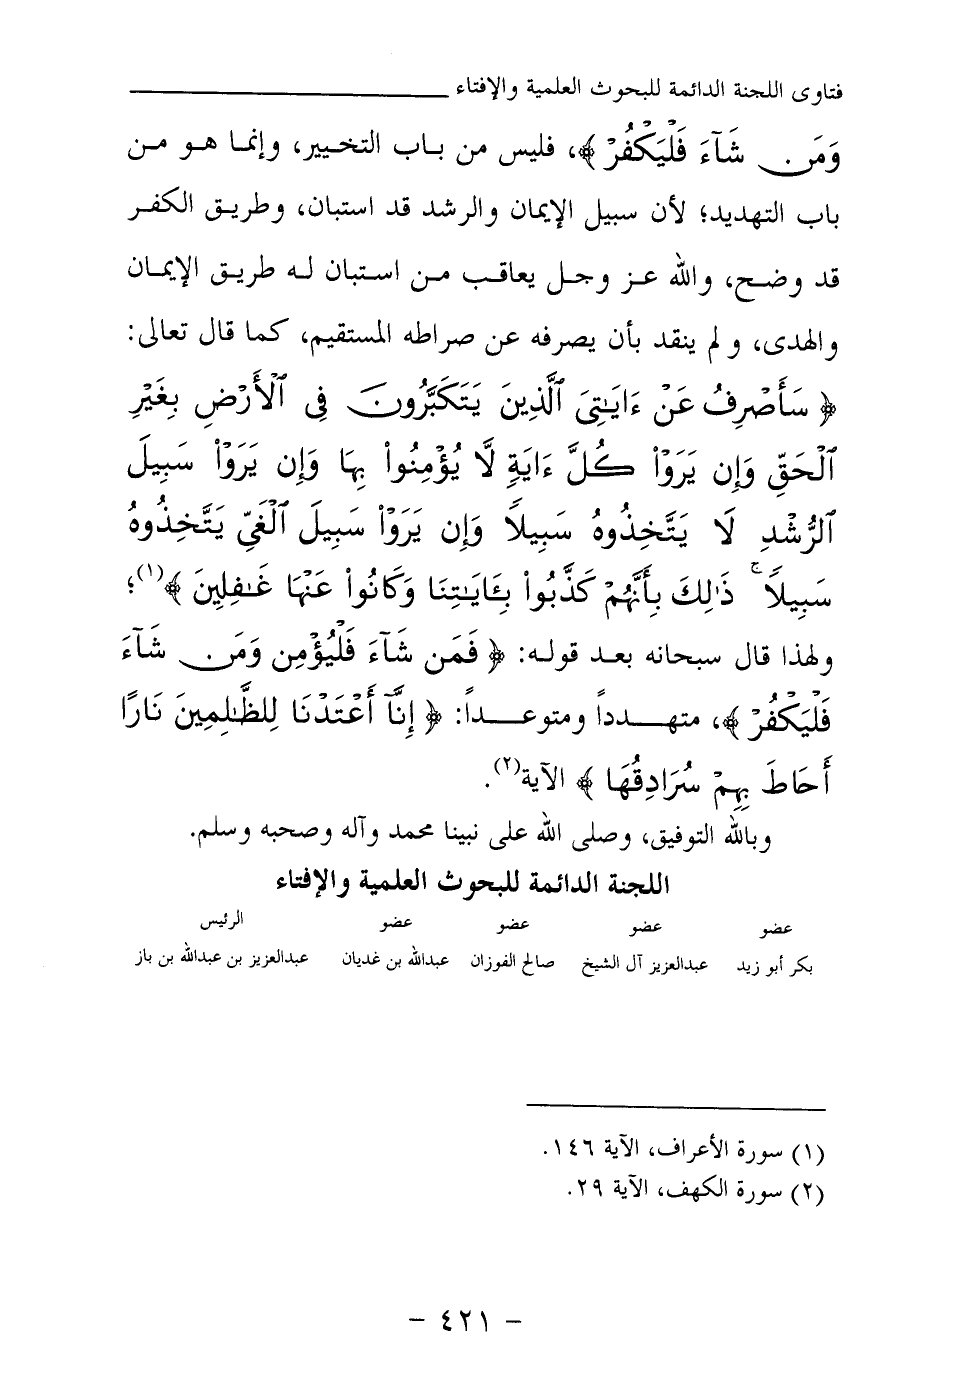 فتاوى اللجنة الدائمة للبحوث العلمية والإفتاء
وَمَن شَآءَ فَلْيَكْفُرْ ﴾، فليس من باب التخيير، وإنما هو من
باب التهديد؛ لأن سبيل الإيمان والرشد قد استبان، وطريق الكفر
قد وضح، والله عز وجل يعاقب من استبان له طريق الإيمان
والهدى، ولم ينقد بأن يصرفه عن صراطه المستقيم، كما قال تعالى:
﴿ سَأَصْرِفُ عَنْ ءَايَٰتِىَ ٱلَّذِينَ يَتَكَبَّرُونَ فِى ٱلْأَرْضِ بِغَيْرِ
ٱلْحَقِّ وَإِن يَرَوْا۟ كُلَّ ءَايَةٍ لَّا يُؤْمِنُوا۟ بِهَا وَإِن يَرَوْا۟ سَبِيلَ
ٱلرُّشْدِ لَا يَتَّخِذُوهُ سَبِيلًا وَإِن يَرَوْا۟ سَبِيلَ ٱلْغَىِّ يَتَّخِذُوهُ
سَبِيلًا ۚ ذَٰلِكَ بِأَنَّهُمْ كَذَّبُوا۟ بِـَٔايَٰتِنَا وَكَانُوا۟ عَنْهَا غَٰفِلِينَ ﴾(١)؛
ولهذا قال سبحانه بعد قوله: ﴿ فَمَن شَآءَ فَلْيُؤْمِن وَمَن شَآءَ
فَلْيَكْفُرْ ﴾، متهدداً ومتوعداً: ﴿ إِنَّآ أَعْتَدْنَا لِلظَّٰلِمِينَ نَارًا
أَحَاطَ بِهِمْ سُرَادِقُهَا ﴾ الآية(٢).
وبالله التوفيق، وصلى الله على نبينا محمد وآله وصحبه وسلم.
اللجنة الدائمة للبحوث العلمية والإفتاء
عضو عضو عضو عضو الرئيس
بكر أبو زيد عبدالعزيز آل الشيخ صالح الفوزان عبدالله بن غديان عبدالعزيز بن عبدالله بن باز
(١) سورة الأعراف، الآية ١٤٦.
(٢) سورة الكهف، الآية ٢٩.
- ٤٢١ -